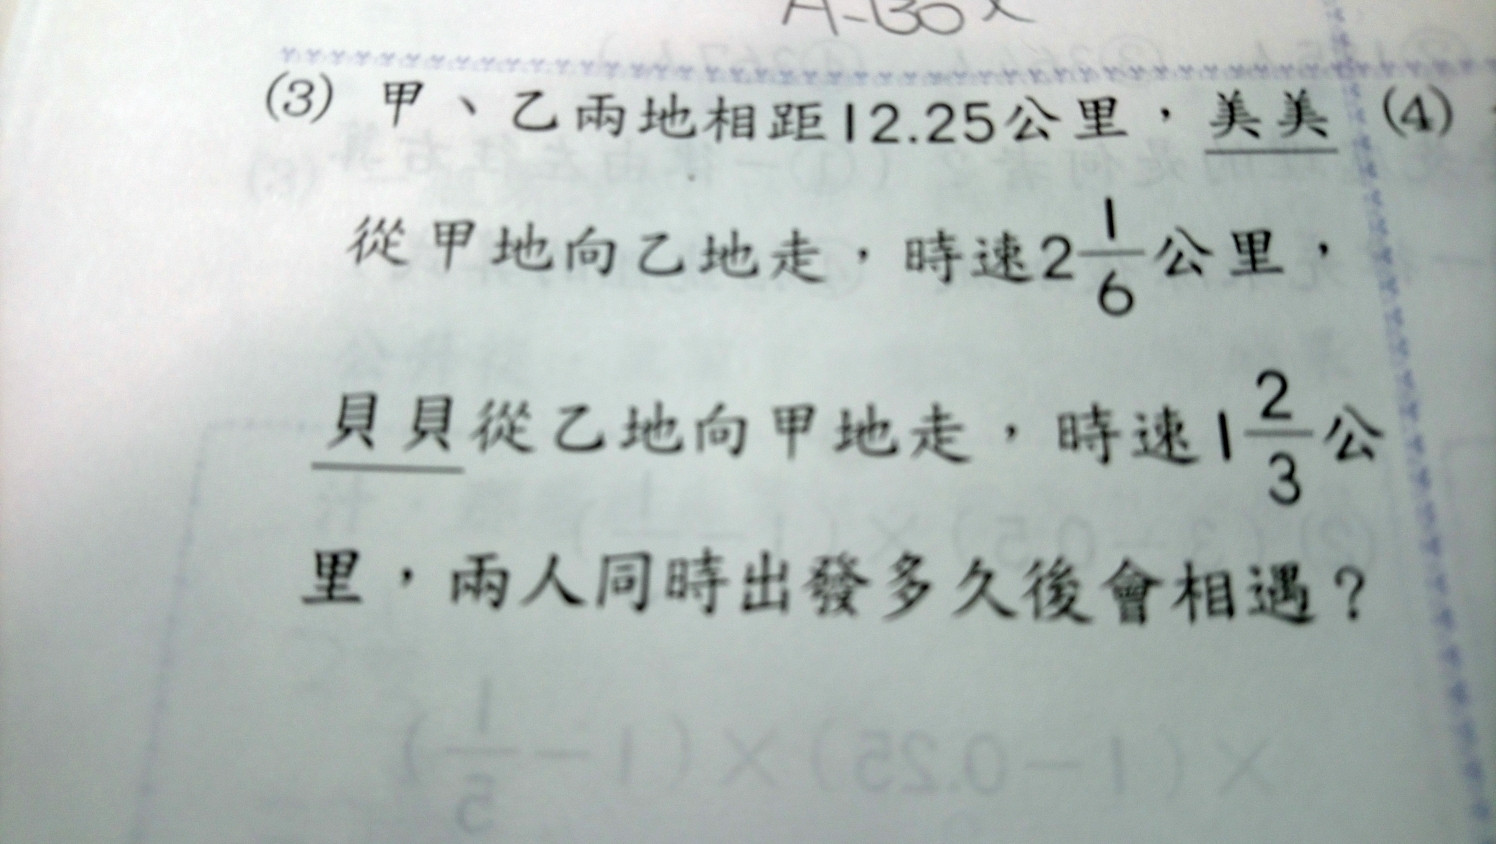 (3) 甲、乙兩地相距12.25公里，美美 (4)
從甲地向乙地走，時速2 1/6 公里，
貝貝從乙地向甲地走，時速1 2/3 公
里，兩人同時出發多久後會相遇？